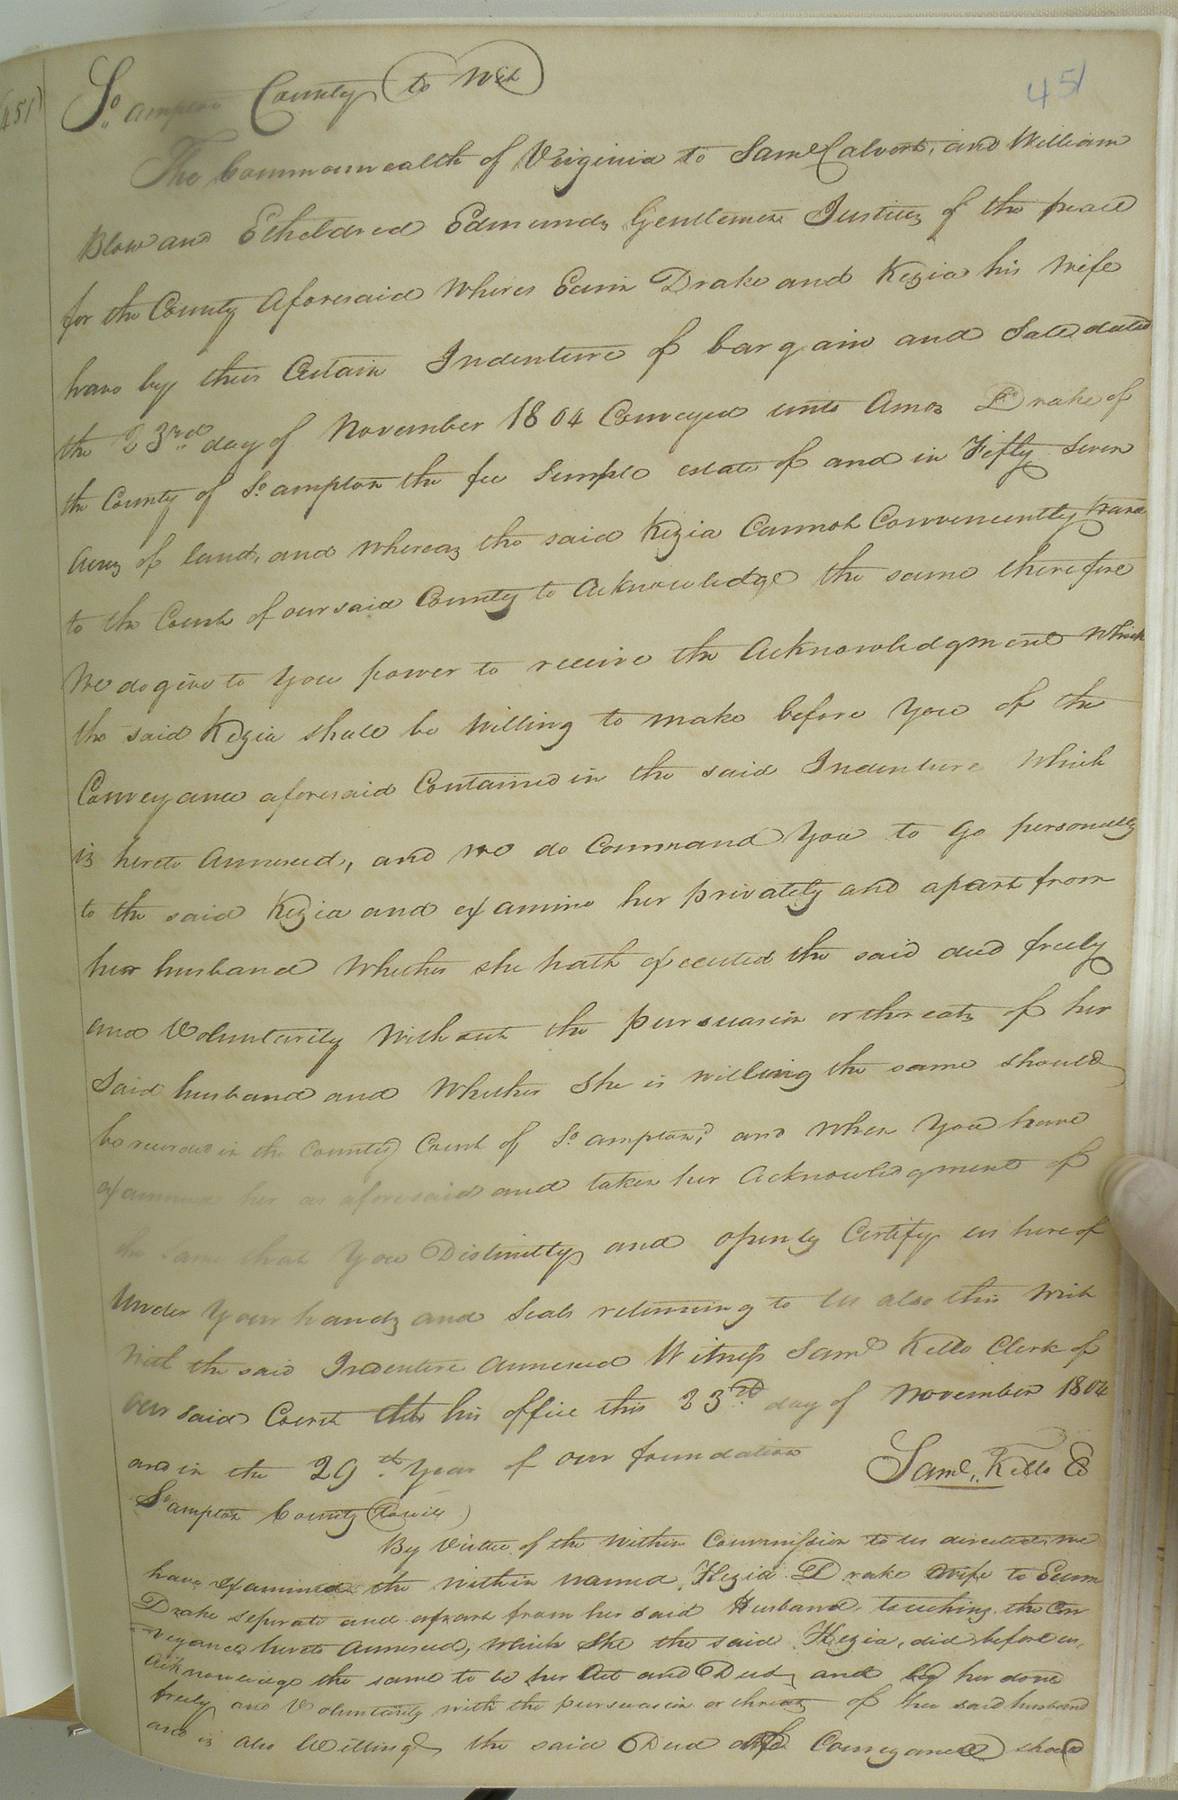 451
(451)
So. ampton County (to Wit)
The Commonwealth of Virginia to Saml. Calvert, and William
Blow and Etheldred Edmunds Gentlemen Justices of the peace
for the County Aforesaid Wheres Exum Drake and Kezia his Wife
have by their Certain Indenture of bargain and Sale dated
the 23rd. day of November 1804 Conveyed unto Amos Drake of
the County of So. ampton the fee Simple estate of and in Fifty Seven
Acres of land, and Whereas the said Kezia Cannot Conveniently travel
to the Court of our said County to Acknowledge the same therefore
We do give to You power to receive the Acknowledgment Which
the said Kezia shall be Willing to make before You of the
Conveyance aforesaid Contained in the said Indenture Which
is hereto Annexed, and we do Command You to go personally
to the said Kezia and examine her privately and apart from
her husband Whether she hath executed the said deed freely
and Voluntarily Without the pursuasion or threats of her
Said husband and Whether She is willing the same should
be recorded in the County Court of So. ampton; and When You have
examined her as aforesaid and taken her Acknowledgment of
the same that You Distinctly and openly Certify us hereof
Under Your hands and Seals returning to Us also this Writ
With the said Indenture Annexed Witness Saml Kello Clerk of
our said Court At his office this 23rd. day of November 1804
and in the 29th. Year of our foundation Saml. Kello C
So. ampton County (Towit)
By Virtue of the Within Commission to Us directed, we
have examined the Within named Kezia Drake Wife to Exum
Drake seperate and apart from her said Husband, touching the Con
veyance hereto Annexed, Which She the said Kezia, did before us,
Acknowledge the same to be her Act and Deed, and by her done
freely and Voluntarily with the pursuasion or threats of her said husband
and is also Willing the said Deed of Conveyance should